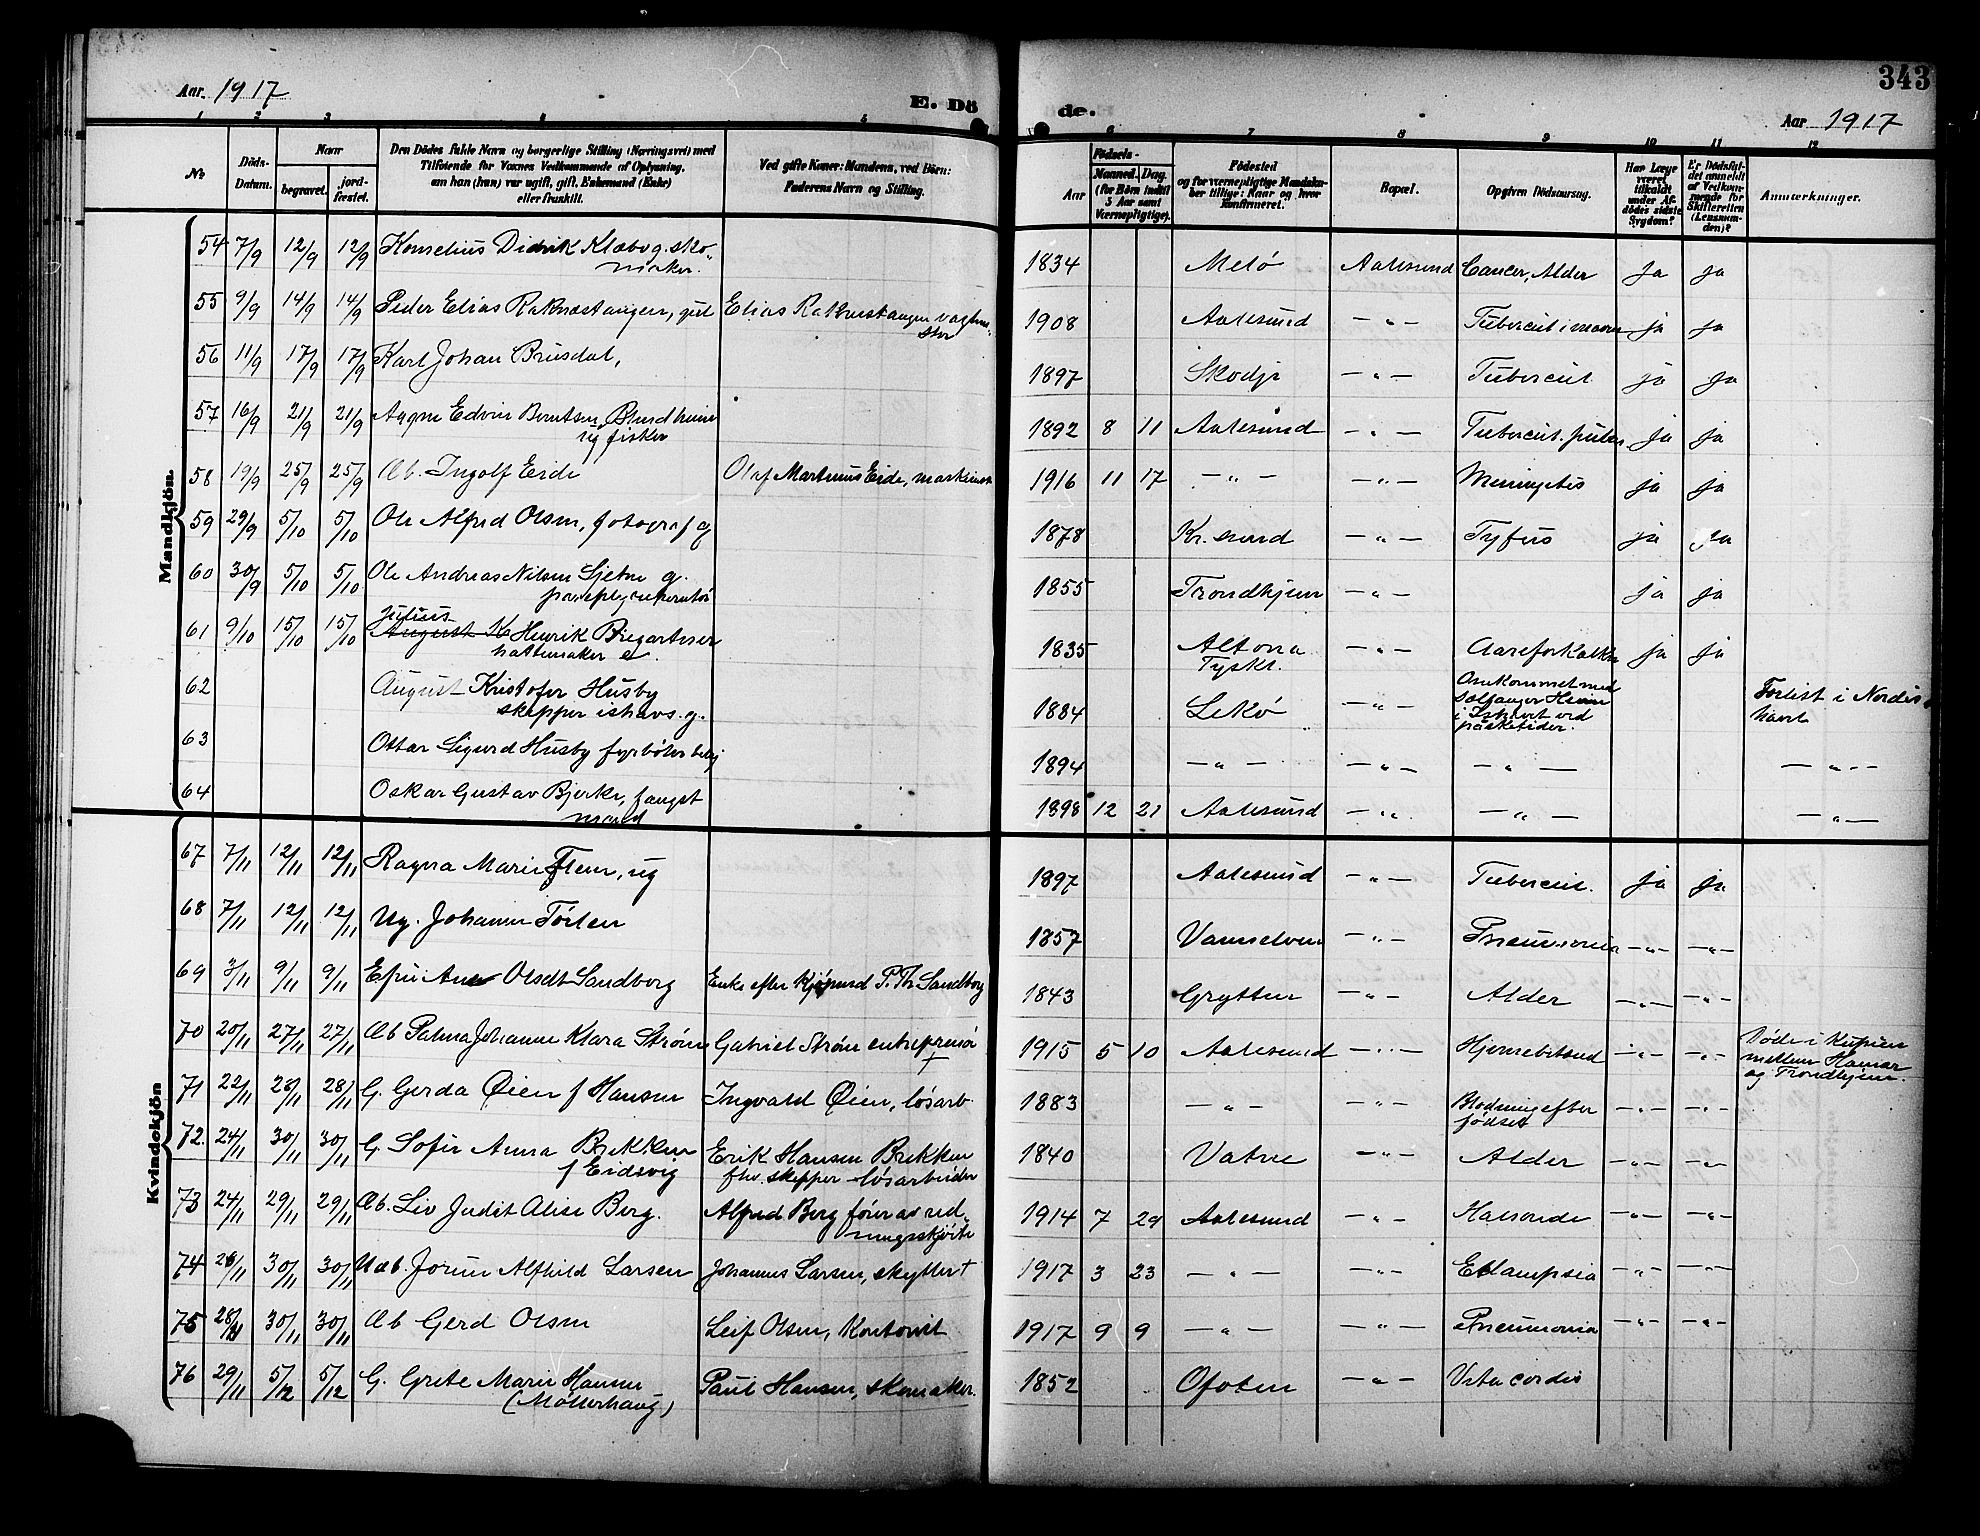 343
Aar. 1917
E. Dö
de.
Aar 1917
1 2 3 4 5 6 7 8 9 10 11 12
No
Döds-Datum.
Naar
begravet.
jord-fæstet.
Den Dödes fulde Navn og borgerlige Stilling (Næringsvei) med
Tilføiende for Voxnes Vedkommende af Oplysning,
om han (hun) var ugift, gift, Enkemand (Enke)
eller fraskilt.
Ved gifte Koner: Mandens, ved Börn:
Faderens Navn og Stilling.
Födsels-
Aar
Maaned. Dag.
(for Börn indtil
5 Aar samt
Værnepligtige).
Födested
og for værnepligtige Mandskaber
tillige: Naar og hvor
konfirmeret.
Bopæl.
Opgiven Dödsaarsag.
Har Læge
været
tilkaldt
under Af-
dödes sidste
Sygdom?
Er Dödsfal-
det anmeldt
af Vedkom-
mende for
Skifteretten
(Lensman-
den)?
Anmærkninger.
Mandkjön.
54 7/9 12/9 12/9 Konselius Didrik Klæbo g. sko-
maker. 1834 Melö Aalesund Cancer, Alder ja ja
55 9/9 14/9 14/9 Peder Elias Raknestangen, Elias Raknestangen vagtme-
ster 1908 Aalesund — " — Tubercul i maven ja ja
56 11/9 17/9 17/9 Karl Johan Brusdal, 1897 Skodje — " — Tubercul. ja ja
57 16/9 21/9 21/9 Aagne Edvin Berntsen Blindheim
ug fisker 1892 8 11 Aalesund — " — Tubercul. pulm ja ja
58 19/9 25/9 25/9 Æb. Ingolf Eide Olaf Martinus Eide, maskinist 1916 11 17 — " — — " — Meningitis ja ja
59 29/9 5/10 5/10 Ole Alfred Olsen, fotograf g 1878 Kr. sund — " — Tyfus ja ja
60 30/9 5/10 5/10 Ole Andreas Nilsen Sjetne g.
paraplyreperatør 1855 Trondhjem — " — ja ja
61 9/10 15/10 15/10 Julius
August K Henrik Biegartesen
hattemaker e. 1835 Altona
Tyskl. — " — Aareforkalkn ja ja
62 August Kristofer Husby
skipper ishavs. g. 1884 Lekö — " — Omkommet med
Sælfanger Heim
i ved
påsketider. Forlist i Nordis-
havet
63 Ottar Sigurd Husby fyrbøter 1894 — " — — " — — " — — " —
64 Oskar Gustav Bjerke, fangst
mand 1898 12 21 Aalesund — " — — " — — " —
Kvindekjön
67 7/11 12/11 12/11 Ragna Marie Flem, ug 1897 Aalesund — " — Tubercul. ja ja
68 7/11 12/11 12/11 Ug. Johanne Törlen 1857 Vannelven — " — Pneumonia — " — — " —
69 3/11 9/11 9/11 Efri Ane Olsdt Sandborg Enke efter Kjøpmd P. Th. Sandborg 1843 Grytten — " — Alder — " — — " —
70 20/11 27/11 27/11 Æb Palma Johanne Klara Strøm Gabriel Strøm entreprenør
+ 1915 5 10 Aalesund — " — Hjernebetænd — " — — " — Døde i Kupéen
mellem Hamar
og Trondhjem.
71 22/11 28/11 28/11 G. Gerda Øien f Hansen Ingvald Øien, løsarb 1883 — " — — " — Blødning efter
fødsel — " — — " —
72. 24/11 30/11 30/11 G. Sofie Anna Brekken
f Eidsvig Erik Hansen Brekken
fhv. skipper løsarbeider 1840 Vatne — " — Alder — " — — " —
73 24/11 29/11 29/11 Æb. Liv Judit Alise Berg. Alfred Berg fører av red-
ningsskøite 1914 7 29 Aalesund — " — Halsonde — " — — " —
74 26/11 30/11 30/11 Uæb. Jorun Alfhild Larsen Johannes Larsen, skytter + 1917 3 23 — " — — " — Eklampsia — " — — " —
75 28/11 30/11 30/11 Æb Gerd Olsen Leif Olsen, Kontorist 1917 9 9 — " — — " — Pneumonia — " — — " —
76 29/11 5/12 5/12 G. Grete Marie Hansen
(Møllerhaug) Paul Hansen, skomaker. 1852 Ofoten — " — Vita cordis